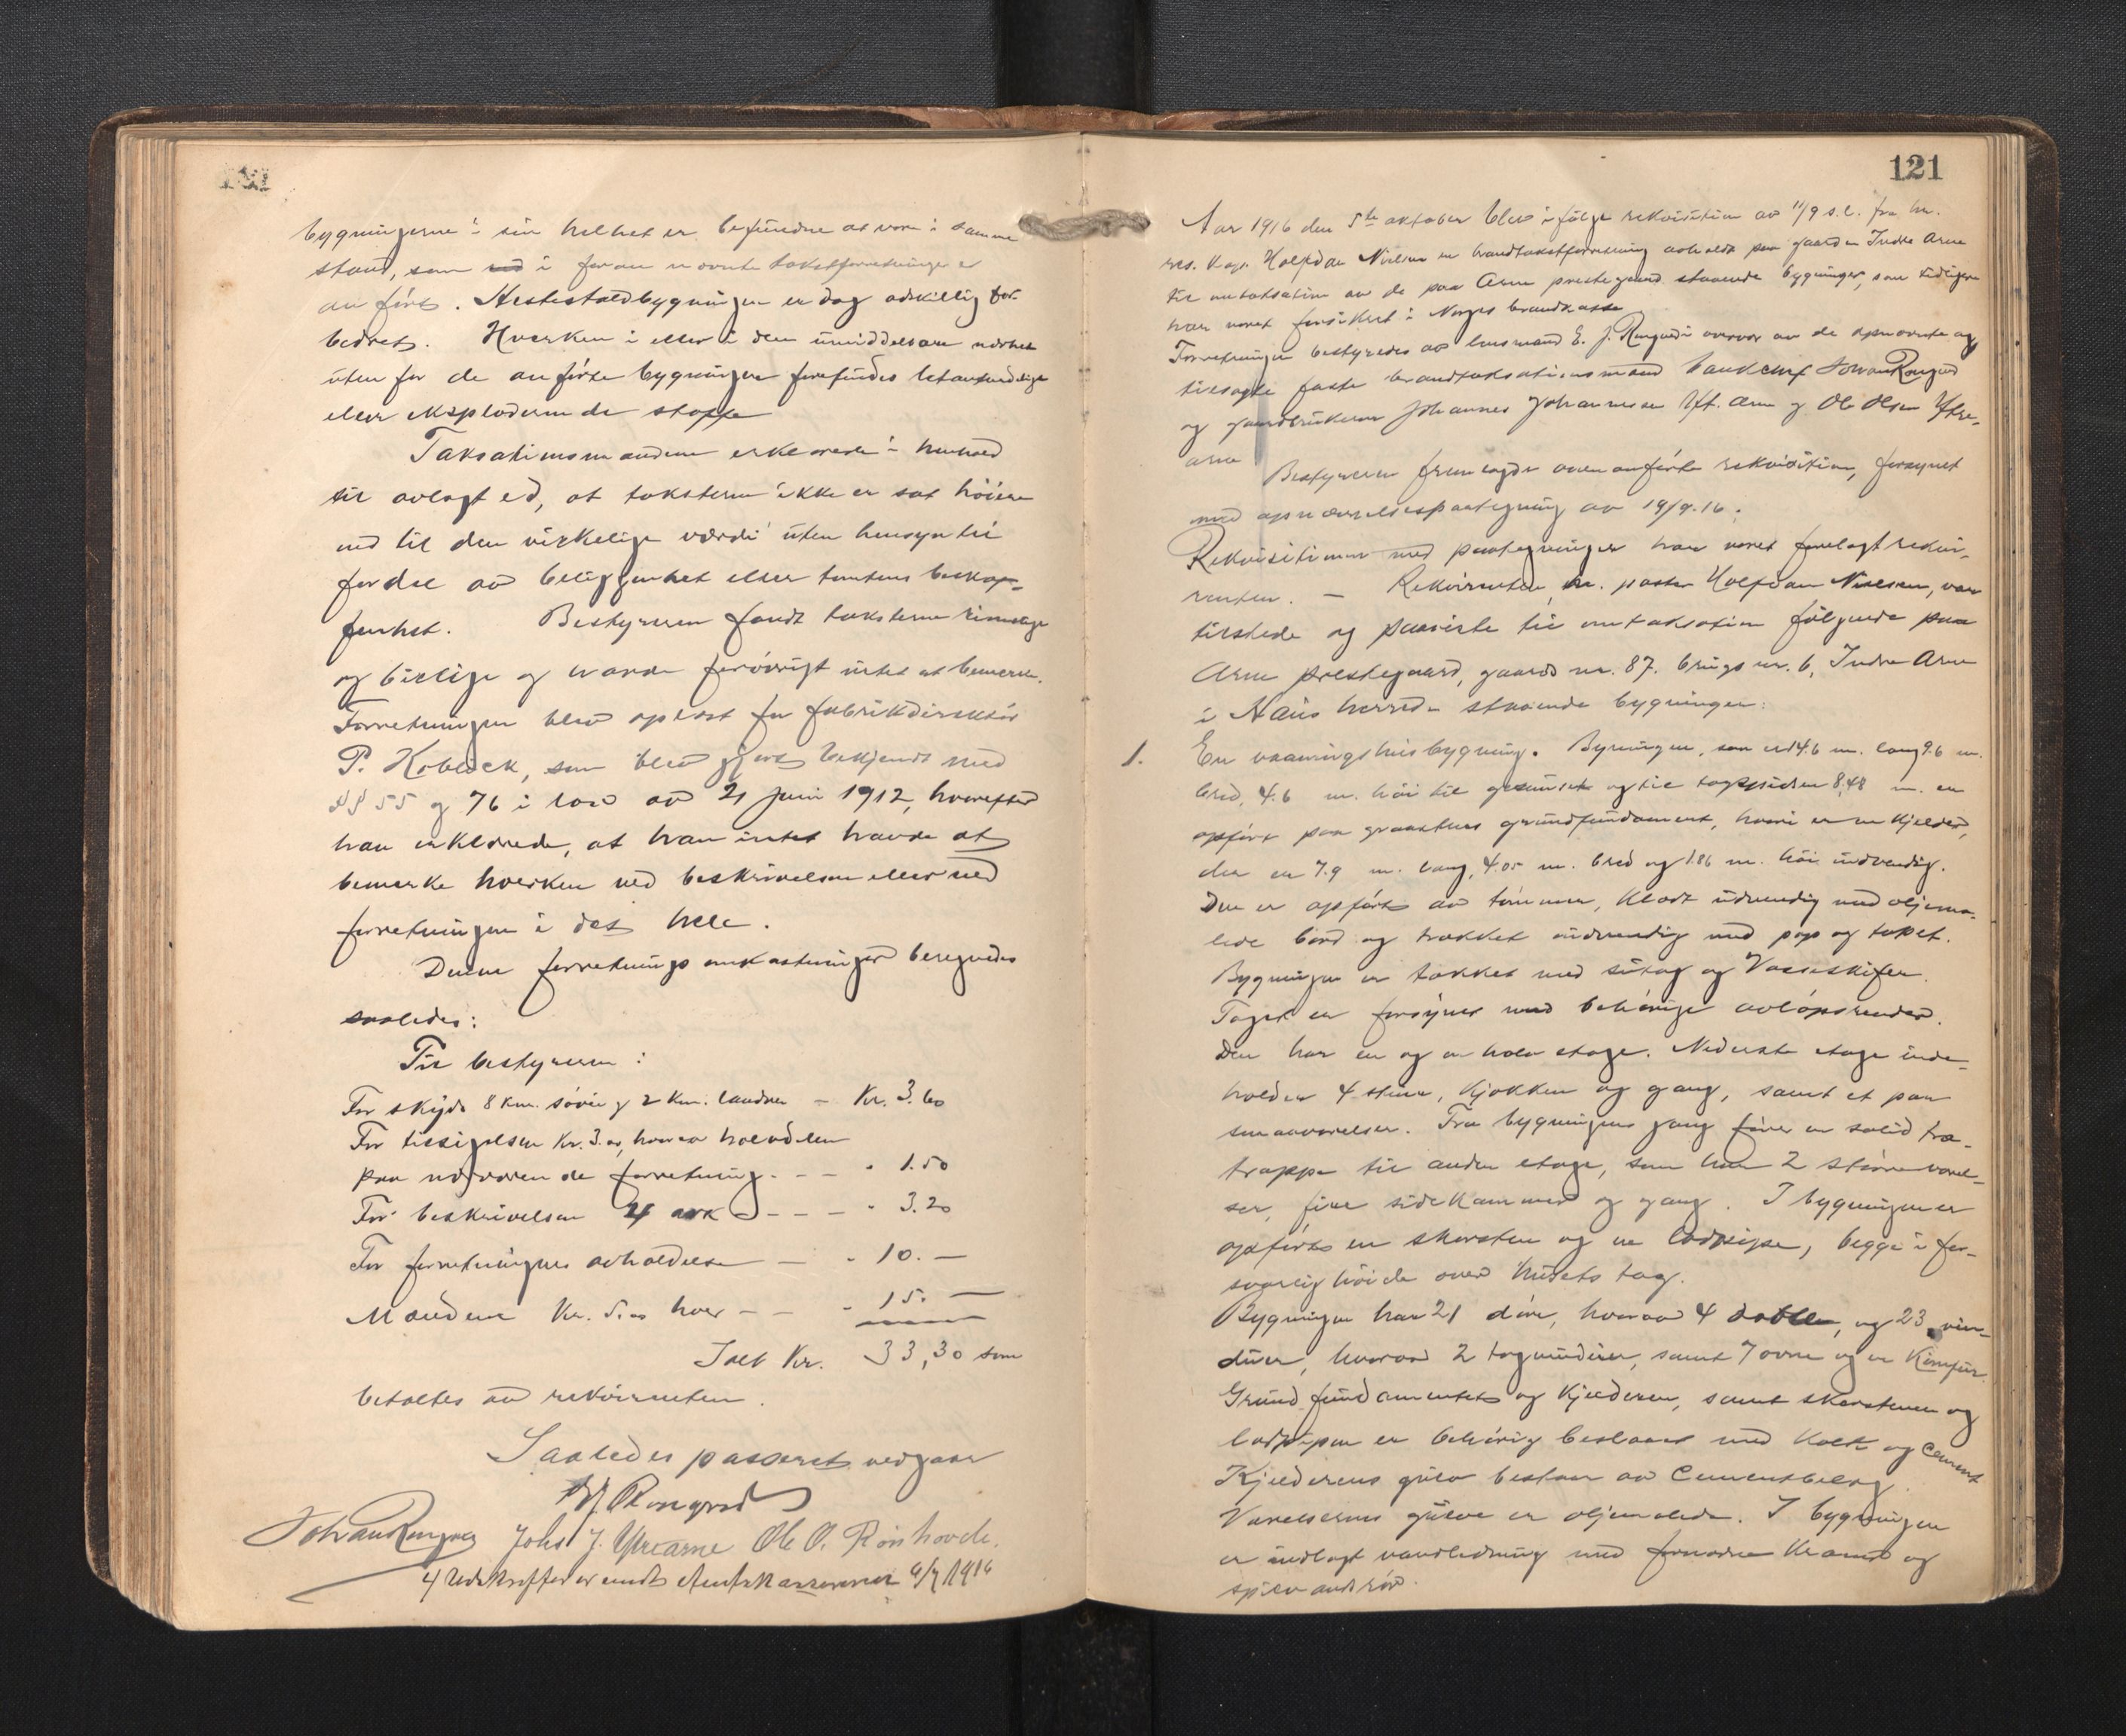 bygningerne i sin helhet er befundne at være i samme
stand, som i foran nævnte takstforretninger er
anført. Hestestaldbygningen er dog adskillig for-
bedret. Hverken i eller i den umiddelbare nærhet
uten for de anførte bygninger forefindes letantændelige
eller eksploderende stoffe
Taksationsmændene erklærede i henhold
til avlagt ed, at taksterne ikke er sat høiere
end til den virkelige værdi uten hensyn til
fordel av beliggenhet eller tomtens beskaf-
fenhet. Bestyreren fandt taksterne rimelige
og billige og havde forøvrigt intet at bemerke.
Forretningen blev oplæst for fabrikdirektør
P. Kobleck, som blev gjort bekjendt med
§§ 55 og 76 i lov av 21 juni 1912, hvorefter
han erklærede, at han intet havde at
bemerke hverken ved beskrivelsen eller ved
forretningen i det hele.
Denne forretnings omkostninger beregnedes
saaledes:
Til bestyreren:
For skyds 8 km. søvei og 2 km. landvei - Kr. 3.60
For tilsigelsen Kr. 3.00, hvorav halvdelen
paa nærværende forretning - - - " 1.50
For beskrivelsen 4 ark - - - " 3.20
For forretningens avholdelse - - " 10. -
Mændene Kr. 5.00 hver - - - " 15. -
Ialt Kr. 33,30 som
betaltes av rekvirenten.
Saaledes passeret vedgaar
E J. Ringvad
Johan Ringvad Johs J. Ytrearne Ole O. Rønhovde.
4 Utskrifter er sendt Amtskassereren 9/1916
121
Aar 1916 den 5te oktober blev ifølge rekvisition av 11/9 d.a. fra hr.
res. kap. Halfdan Nielsen en brandtakstforretning avholdt paa gaarden Indre Arne
til omtaksation av de paa Arne prestegaard staaende bygninger, som tidligere
har været forsikret i Norges brandkasse
Forretningen bestyredes av lensmand E. J. Ringvad i overvær av de opnævnte og
tilsagte faste brandtaksationsmænd Johan Ringvad
og gaardbrukerne Johannes Johannessen Ytt. Arne og Ole Olsen Ytre-
arne
Bestyreren fremlagde ovenanførte rekvisition, forsynet
med opnævnelsespaategning av 19/9.16.
Rekvisitionen med paategninger har været forelagt rekvi-
renten. - Rekvirenten, hr. pastor Halfdan Nielsen, var
tilstede og paaviste til omtaksation følgende paa
Arne prestegaard, gaards nr. 87. bruks nr. 6, Indre Arne
i Haus herred staaende bygninger:
1. En vaaningshusbygning. Bygningen, som er 14.6 m. lang 9.6 m.
bred, 4.6 m. høi til gesimsen og til tagspidsen 8,48 m. er
opført paa graastens grundfundament, hvori er en kjelder,
der er 7.9 m. lang, 4.05 m. bred og 1.86 m. høi indvendig.
Den er opført av tømmer, klædt utvendig med oljema-
lede bord og trukket indvendig med pap og tapet.
Bygningen er tækket med sutag og Vosseskifer.
Taget er forsynet med behørige avløpsrender.
Den har en og en halv etage. Nederste etage inde-
holder 4 stuer, kjøkken og gang, samt et par
smaaværelser. Fra bygningens gang fører en solid træ-
trappe til anden etage, som har 2 større værel-
ser, fire sidekammer og gang. I bygningen er
opført en skorsten og en lodpipe, begge i for-
svarlig høide over husets tag.
Bygningen har 21 døre, hvorav 4 doble, og 23 vin-
duer, hvorav 2 tagvinduer, samt 7 ovne og en komfur.
Grundfundamentet og kjelderen, samt skorstenen og
lodpipen er behørig beslaaet med kalk og cement
Kjelderens gulv bestaar av cementbelæg.
Værelsernes gulve er oljemalede. I bygningen
er indlagt vandledning med fornødne kraner og
spildvandsrør.